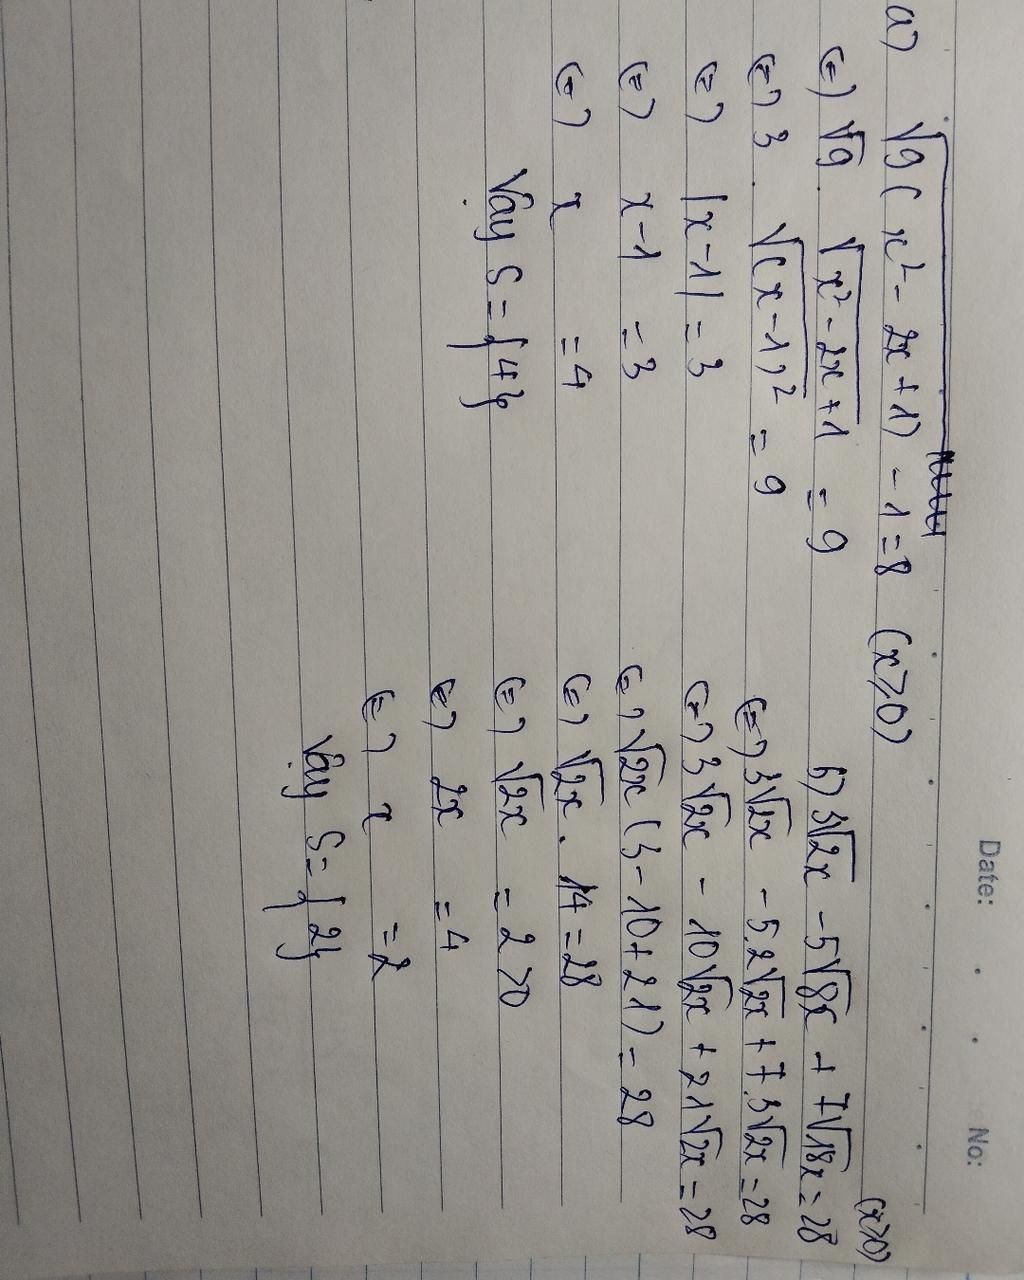 Date: No:
a) √9(x² - 2x + 1) - 1 = 8 (x ≥ 0)
(=) √9 . √x² - 2x + 1 = 9
(=) 3 . √(x - 1)² = 9
(=) |x - 1| = 3
(=) x - 1 = 3
(=) x = 4
Vậy S = {4}
(x ≥ 0)
b) 3√2x - 5√8x + 7√18x = 28
(=) 3√2x - 5.2√2x + 7.3√2x = 28
(=) 3√2x - 10√2x + 21√2x = 28
(=) √2x (3 - 10 + 21) = 28
(=) √2x . 14 = 28
(=) √2x = 2 > 0
(=) 2x = 4
(=) x = 2
Vậy S = {2}